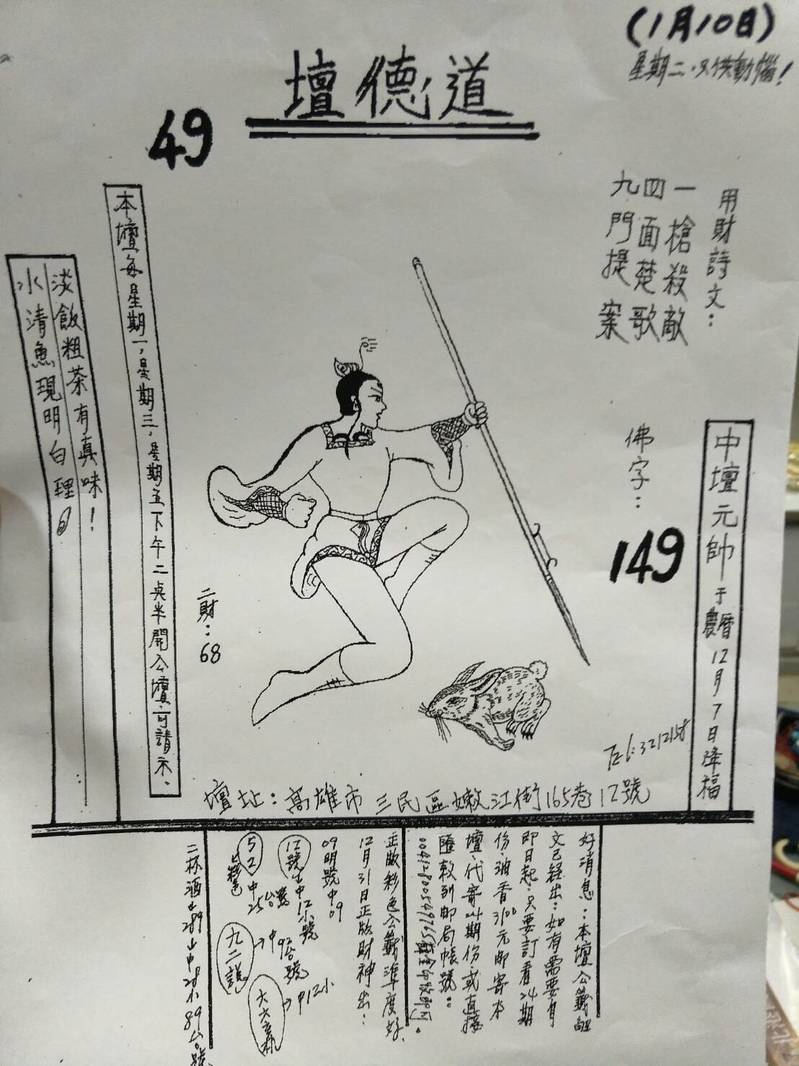 (1月10日)
星期二.只供動惱!
道德壇
49
用財詩文:
一槍殺敵
四面楚歌
九門提案
佛字:
149
中壇元帥于農曆12月7日降福
本壇每星期一,星期三,星期五下午二点半開公壇可請示。
淡飯粗茶有真味!
水清魚現明白理
二財:68
壇址:高雄市三民區嫩江街165巷12號
Tel:3212158
好消息:本壇公籤
文已經出:如有需要有
即日起:只要訂看24期
份油香3100元即寄本
壇.代寄24期份或直接
匯款到郵局帳號:
正版彩色公籤準度好
12月31日正版財神出:
09明號中09
12號中12小號
52中25台號
九二説→中92台號
六六森→中12小
二杯酒